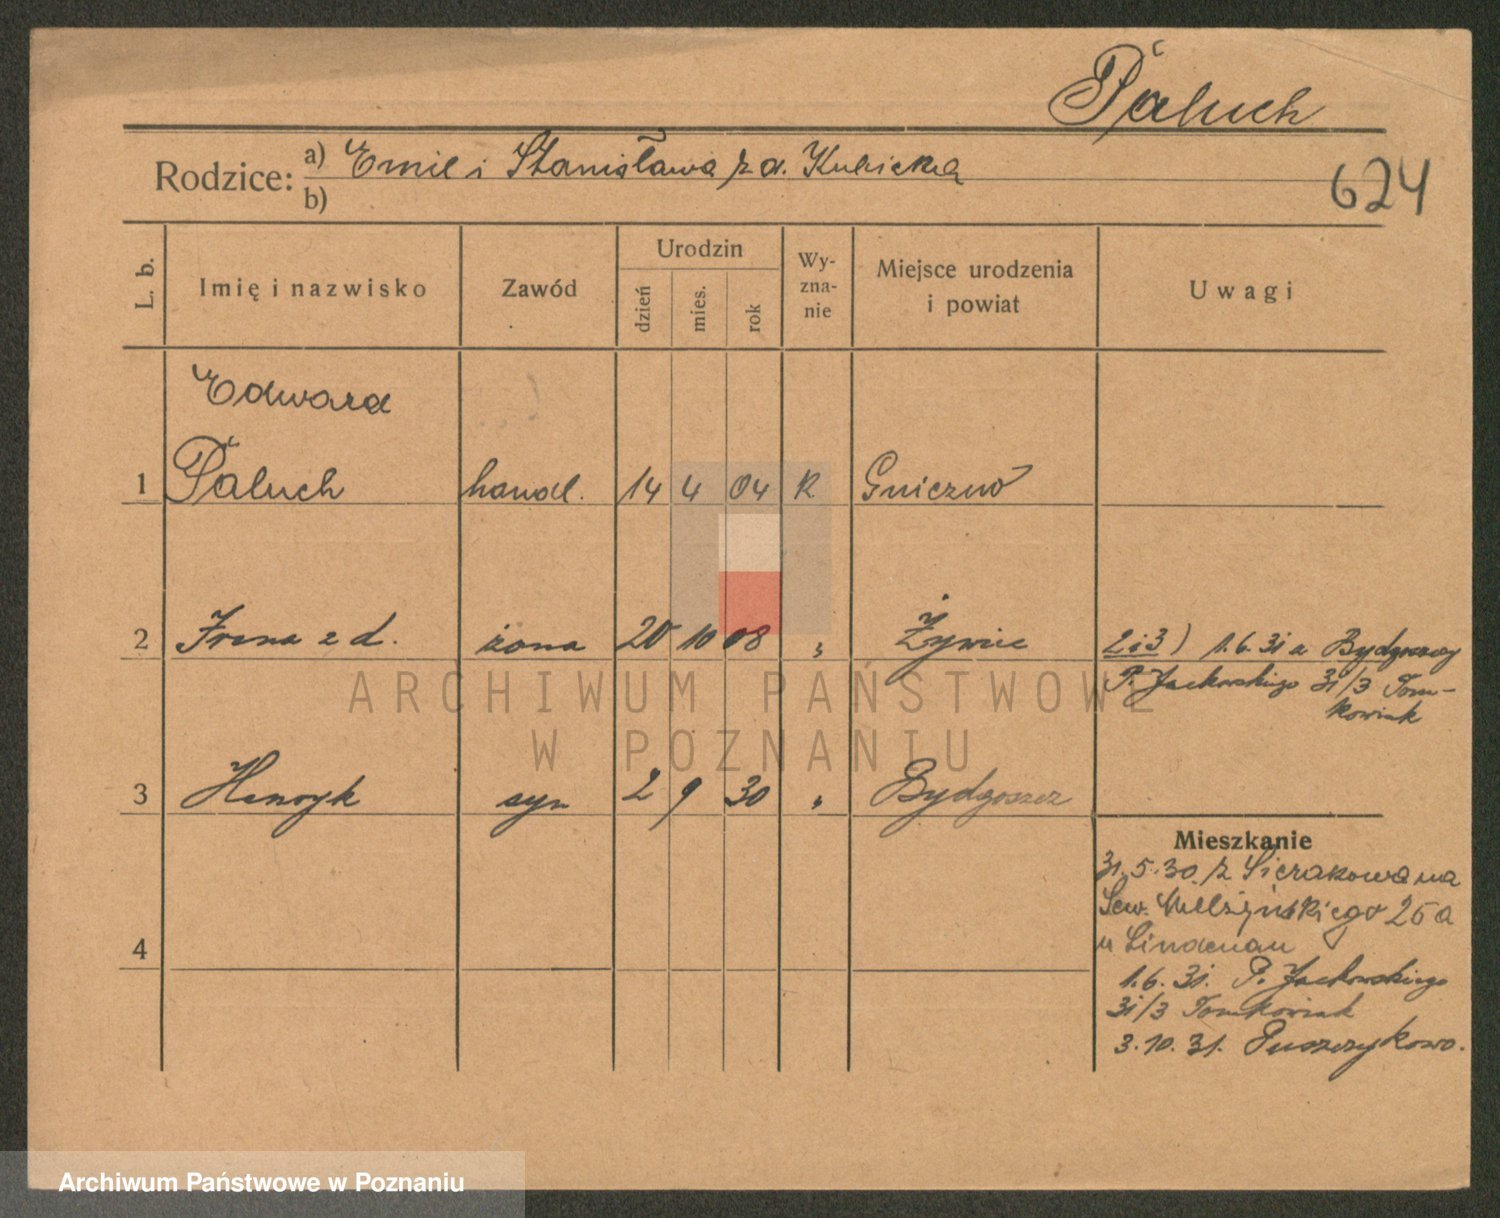 Paluch
Rodzice: a) Emil i Stanisława z d. Kubicka
b)
624
L. b. Imię i nazwisko Zawód Urodzin dzień mies. rok Wy-zna-nie Miejsce urodzenia i powiat Uwagi
Edward
1 Paluch handl. 14 4 04 K Gniezno
2 Irena z d. żona 20 10 08 " Żywiec 2 i 3) 1.6.31 z Bydgoszczy
P. Jackowskiego 31/3 Tom-
kowiak
ARCHIWUM PAŃSTWOWE
W POZNANIU
3 Henryk syn 2 9 30 " Bydgoszcz
Mieszkanie
31.5.30. z Sierakowa na
Sew. Mielżyńskiego 25a
u Lindenau
4
1.6.31. P. Jackowskiego
31/3 Tomkowiak
3.10.31. Puszczykowo.
Archiwum Państwowe w Poznaniu